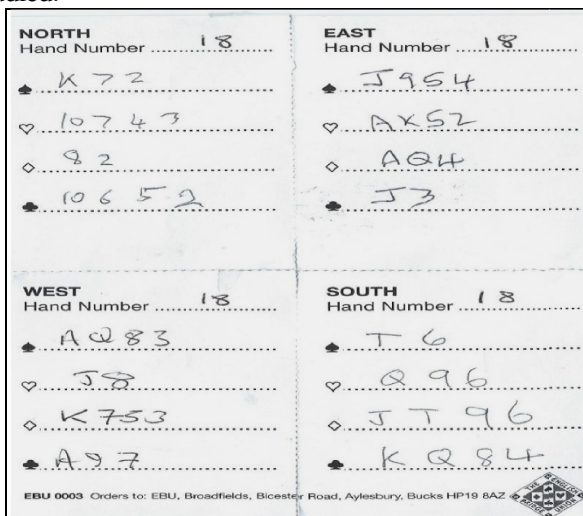 NORTH
Hand Number 18
♠ K 7 2
♡ 10 7 4 3
◇ 8 2
♣ 10 6 5 2
EAST
Hand Number 18
♠ J 9 5 4
♡ A K 5 2
◇ A Q 4
♣ J 3
WEST
Hand Number 18
♠ A Q 8 3
♡ J 8
◇ K 7 5 3
♣ A 9 7
SOUTH
Hand Number 18
♠ T 6
♡ Q 9 6
◇ J T 9 6
♣ K Q 8 4
EBU 0003 Orders to: EBU, Broadfields, Bicester Road, Aylesbury, Bucks HP19 8AZ
THE ENGLISH
BRIDGE UNION